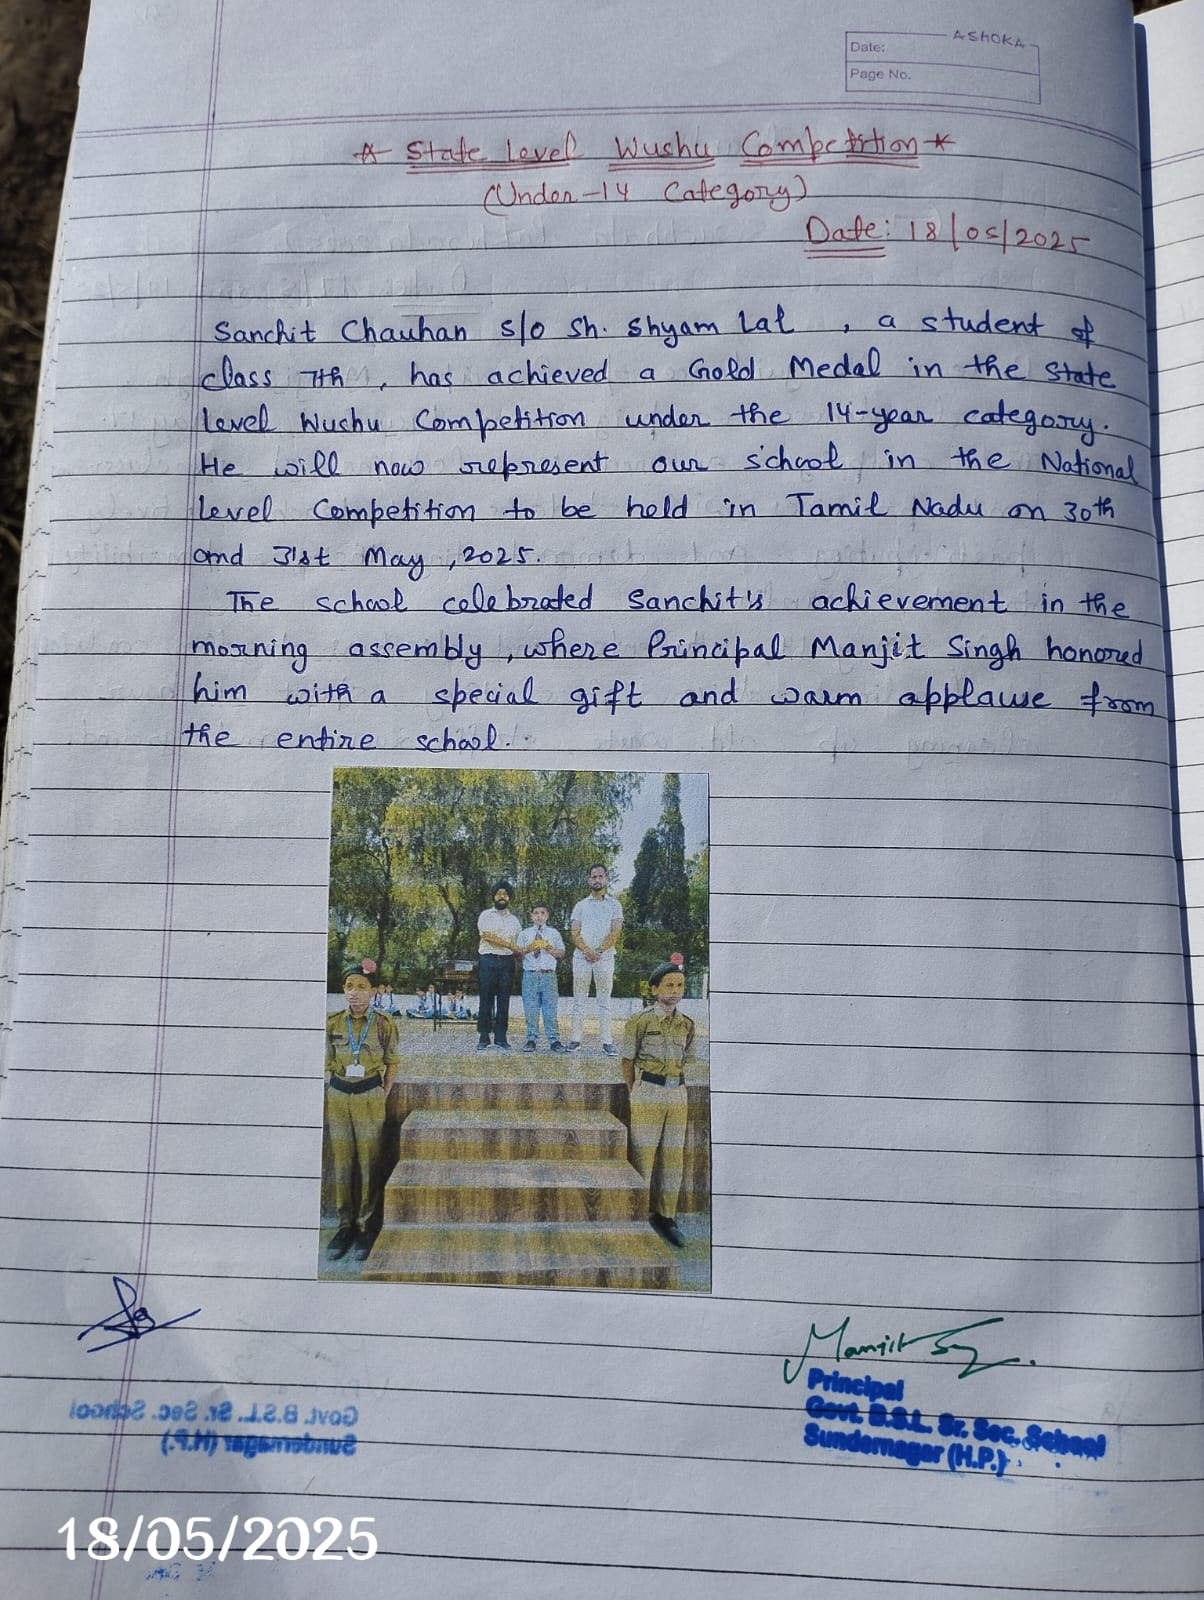 ASHOKA
Date:
Page No.
☆ State Level Wushu Competition ☆
(Under-14 Category)
Date: 18/05/2025
Sanchit Chauhan s/o Sh. Shyam Lal , a student of
class 7th , has achieved a Gold Medal in the State
Level Wushu Competition under the 14-year category.
He will now represent our school in the National
Level Competition to be held in Tamil Nadu on 30th
and 31st May ,2025.
The school celebrated Sanchit's achievement in the
morning assembly, where Principal Manjit Singh honored
him with a special gift and warm applause from
the entire school.
Manjit
Principal
Govt. B.S.L. Sr. Sec. School
Sundernagar (H.P.)
Govt. B.S.L. Sr. Sec. School
Sundernagar (H.P.)
18/05/2025